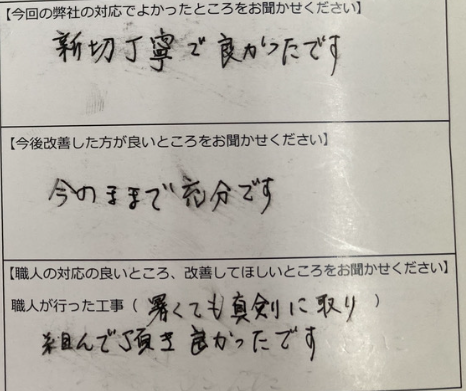 【今回の弊社の対応でよかったところをお聞かせください】
新切丁寧で良かったです
【今後改善した方が良いところをお聞かせください】
今のままで充分です
【職人の対応の良いところ、改善してほしいところをお聞かせください】
職人が行った工事（暑くても真剣に取り）
組んで頂き良かったです